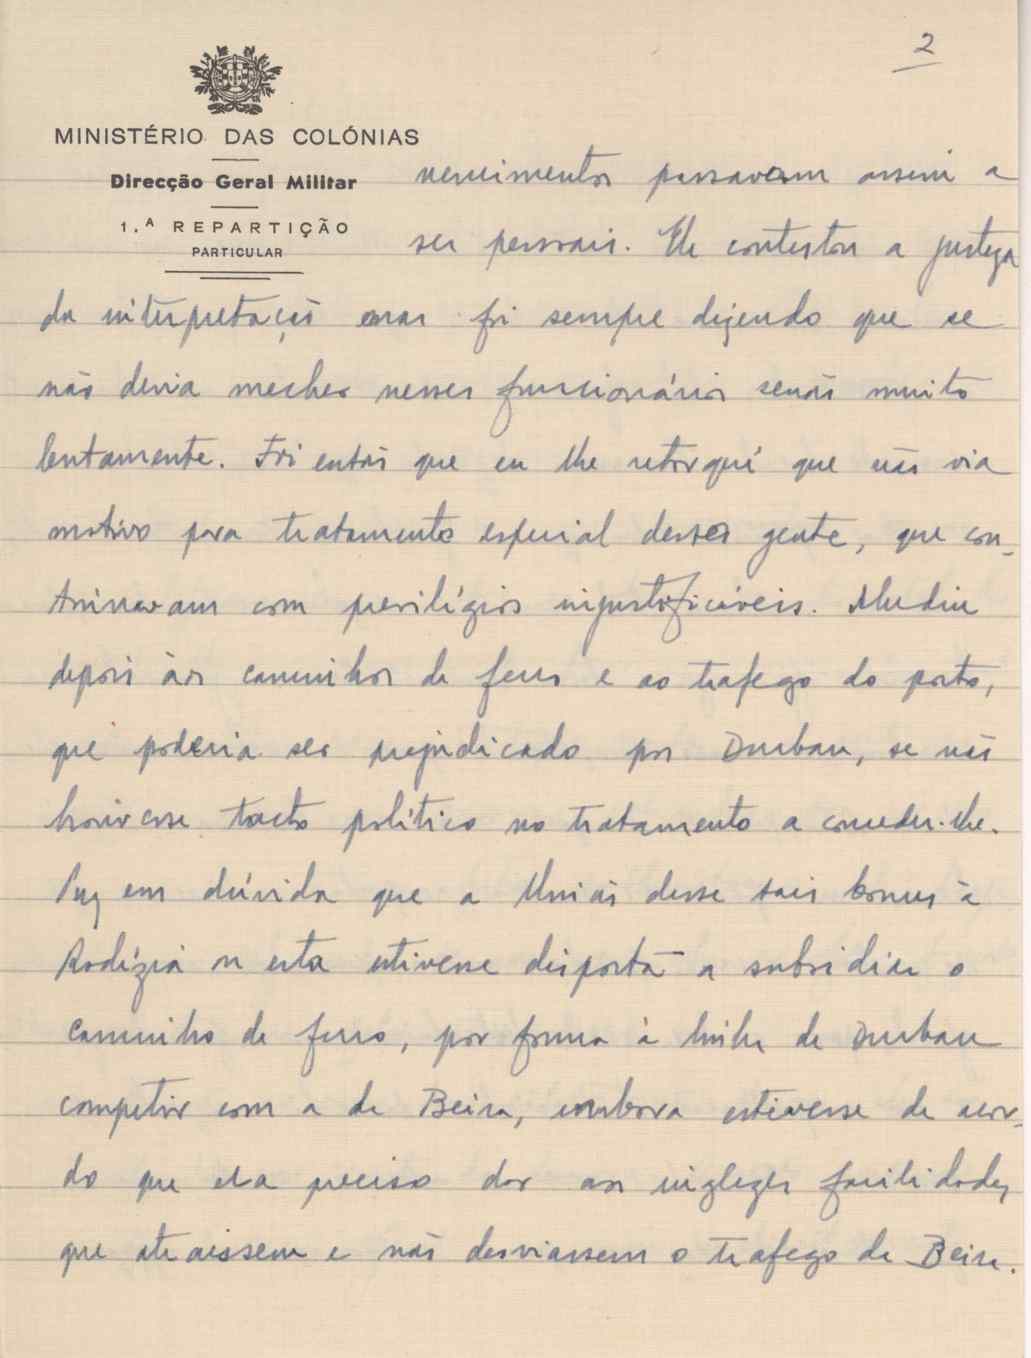 2
MINISTÉRIO DAS COLÓNIAS
Direcção Geral Militar
1.ª REPARTIÇÃO
PARTICULAR
vencimentos passavam assim a
ser pessoais. Ele contestou a justeza
da interpretação mas foi sempre dizendo que se
não devia mecher nesses funcionários senão muito
lentamente. Foi então que eu lhe retorquí que não via
motivo para tratamento especial dessa gente, que con-
tinuavam com previlégios injustificáveis. Aludiu
depois àos caminhos de ferro e ao trafego do porto,
que poderia ser prejudicado por Durban, se não
houvesse tacto político no tratamento a conceder-lhe.
Puz em dúvida que a União desse tais bonus à
Rodézia ou esta estivesse disposta a subsidiar o
caminho de ferro, por forma à linha de Durban
competir com a da Beira, embora estivesse de acor-
do que era preciso dar aos inglezes facilidades
que atraissem e não desviassem o trafego da Beira.